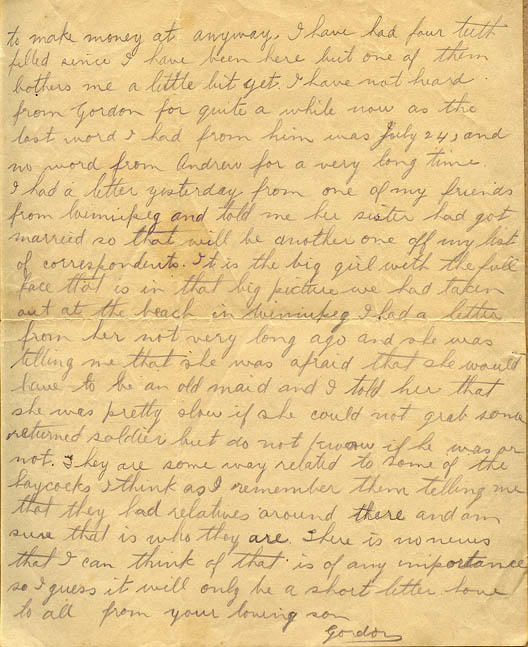 to make money at anyway. I have had four teeth
filled since I have been here but one of them
bothers me a little bit yet. I have not heard
from Gordon for quite a while now as the
last word I had from him was July 24, and
no word from Andrew for a very long time.
I had a letter yesterday from one of my friends
from Winnipeg and told me her sister had got
married so that will be another one off my list
of correspondents. It is the big girl with the full
face that is in that big picture we had taken
out at the beach in Winnipeg I had a letter
from her not very long ago and she was
telling me that she was afraid that she would
have to be an old maid and I told her that
she was pretty slow if she could not grab some
returned soldier but do not know if he was or
not. They are some way related to some of the
Haycocks I think as I remember them telling me
that they had relatives around there and am
sure that is who they are. There is no news
that I can think of that is of any importance
so I guess it will only be a short letter love
to all from your loving son
Gordon